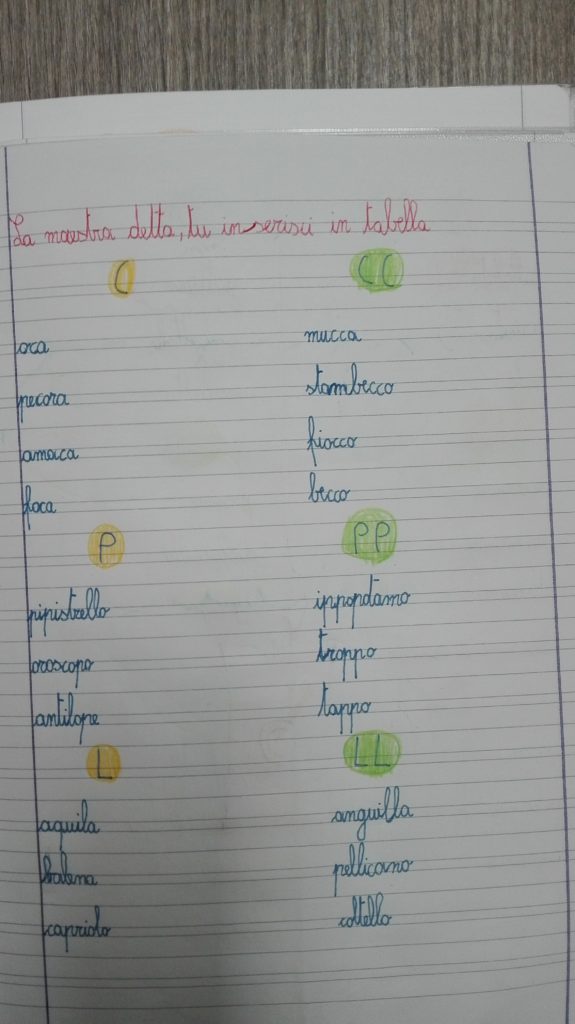 La maestra detta, tu inserisci in tabella
C CC
oca mucca
pecora stambecco
amaca fiocco
foca becco
P PP
pipistrello ippopotamo
oroscopo troppo
antilope tappo
L LL
aquila anguilla
balena pellicano
capriolo coltello